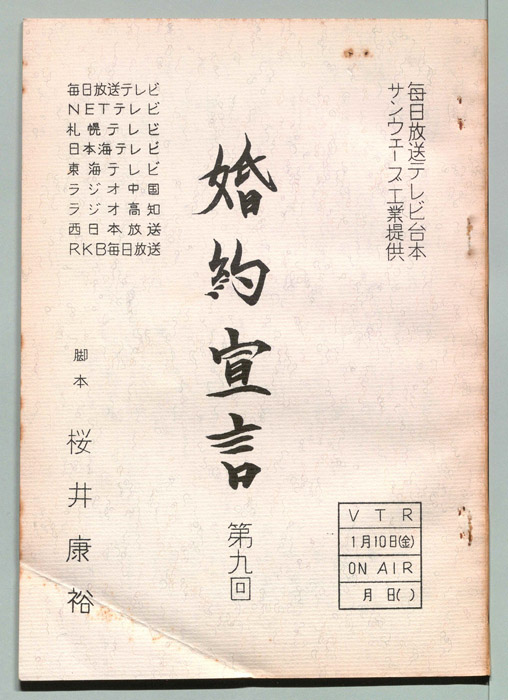 毎日放送テレビ台本
サンウェーブ工業提供
婚約宣言
第九回
毎日放送テレビ
NETテレビ
札幌テレビ
日本海テレビ
東海テレビ
ラジオ中国
ラジオ高知
西日本放送
RKB毎日放送
脚本
桜井康裕
VTR
1月10日(金)
ON AIR
月 日( )